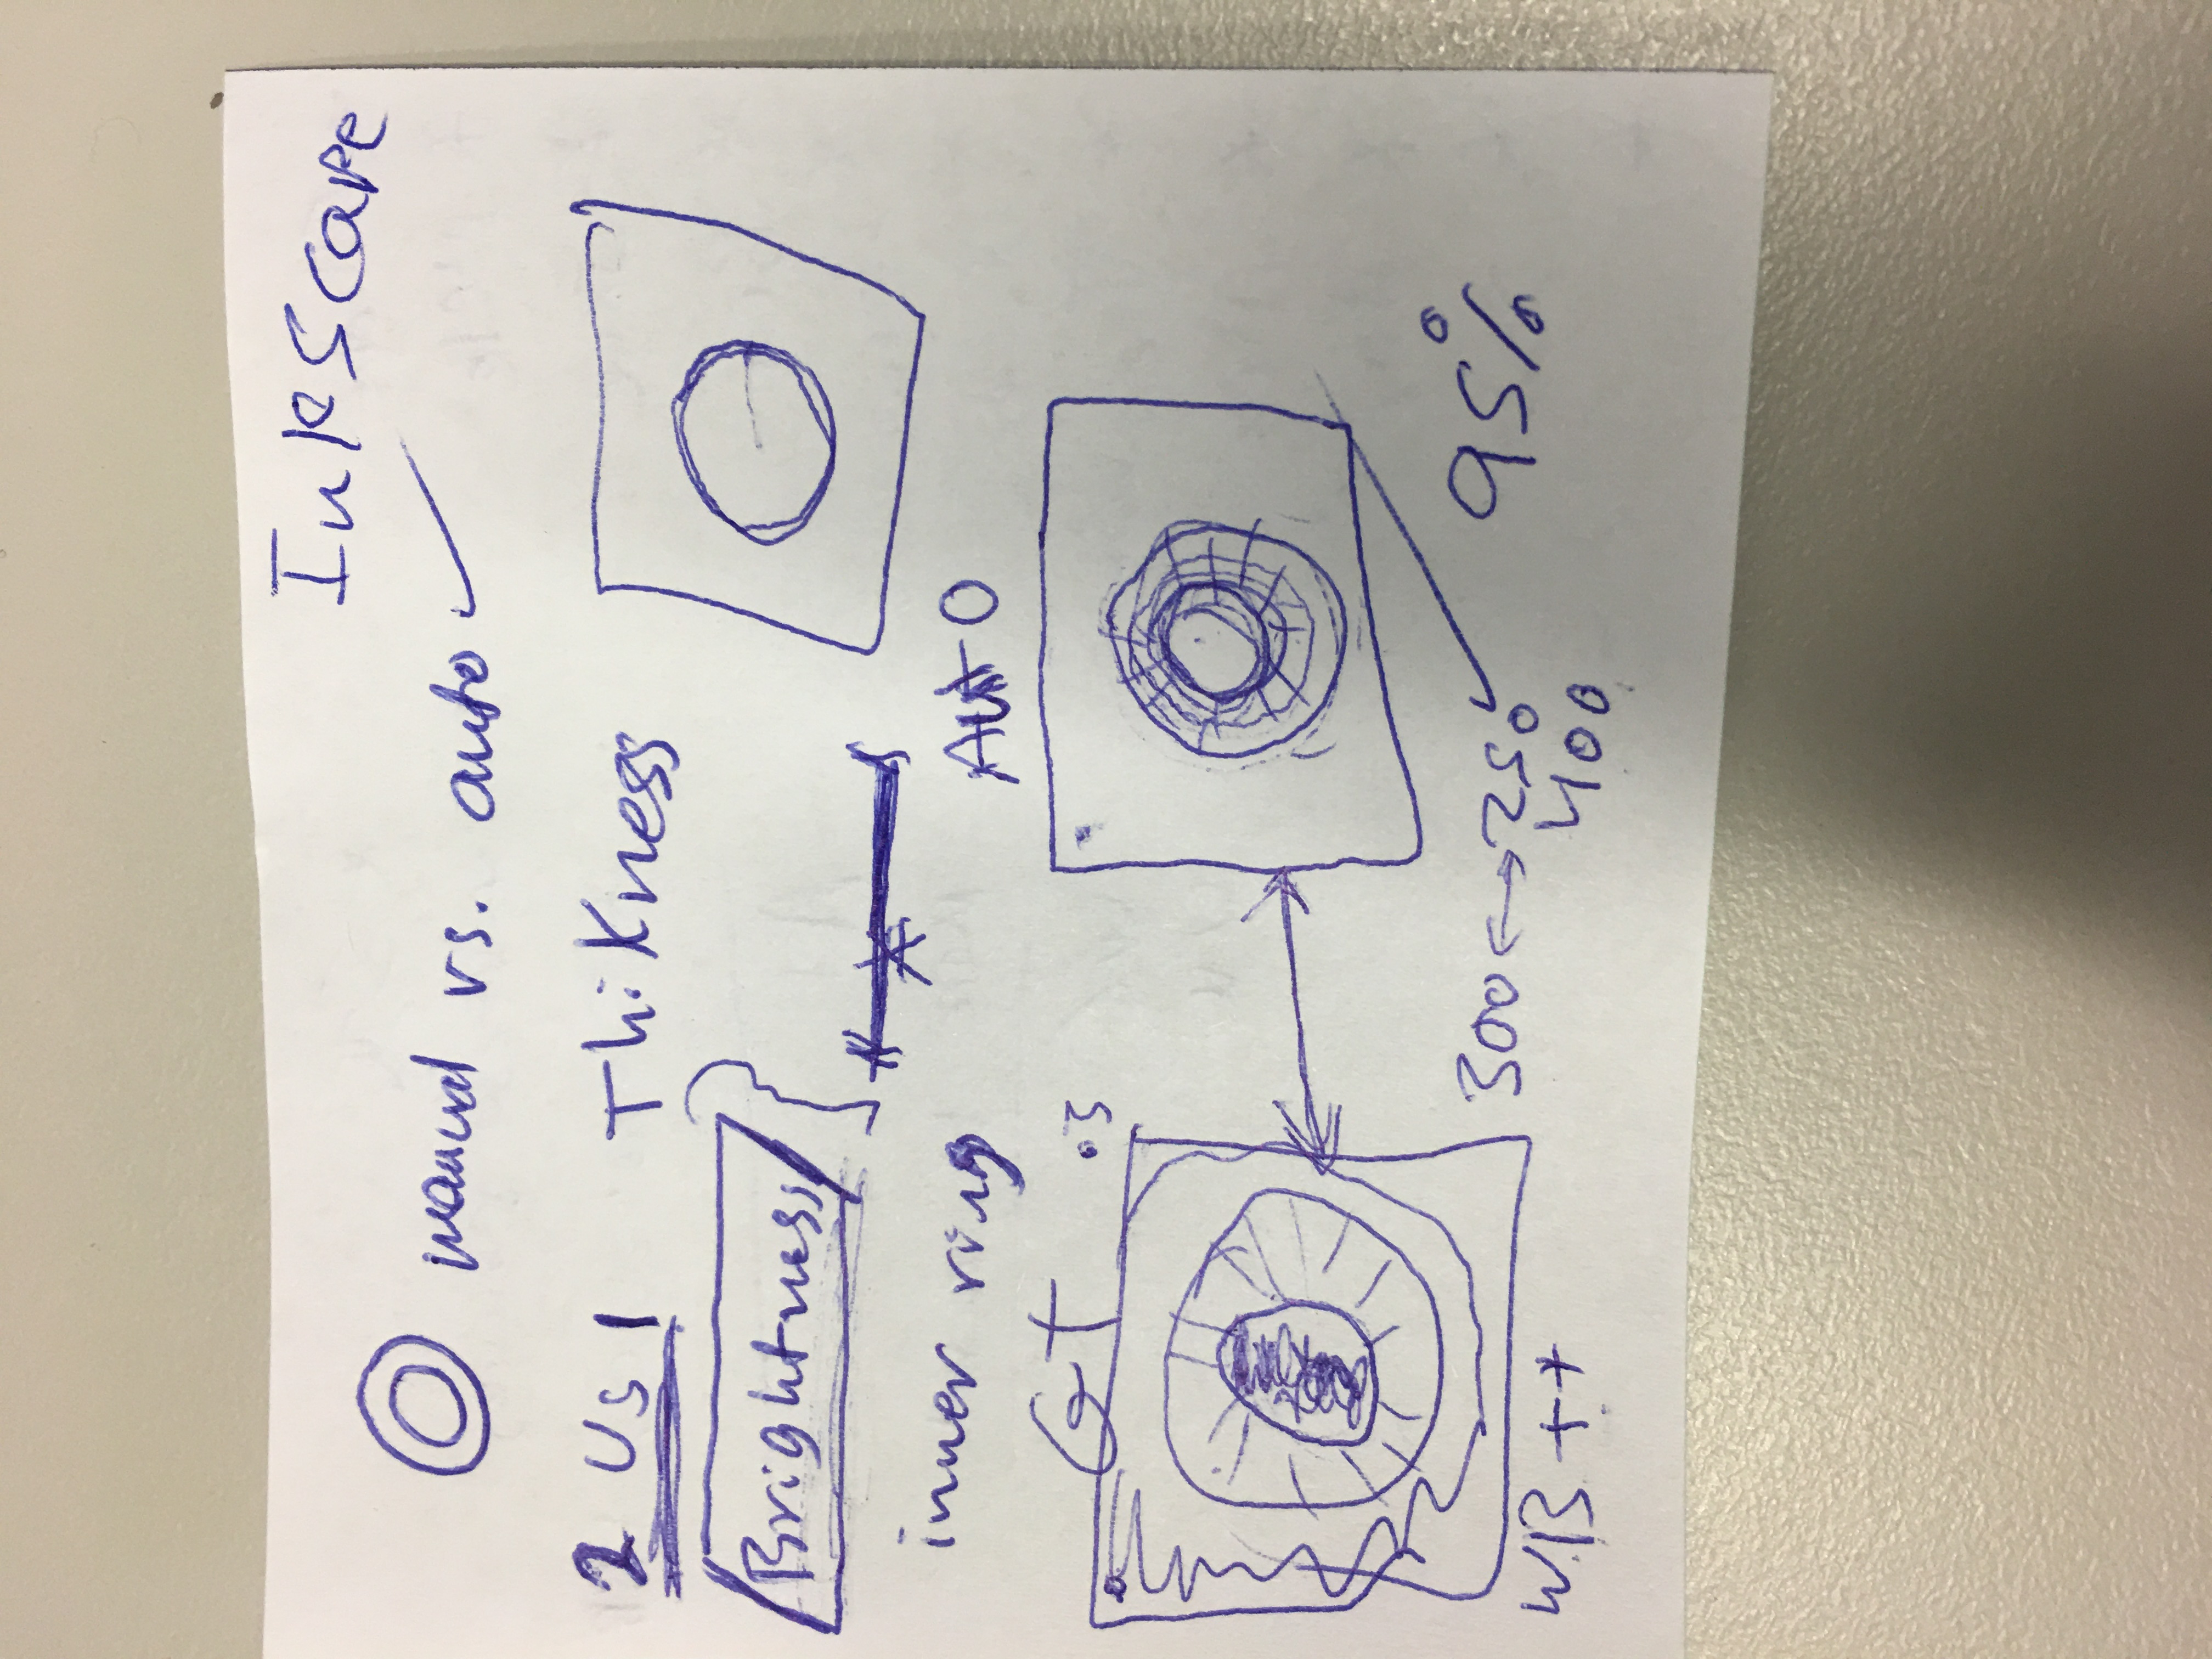 InkScape
manual vs. auto
2 Vs 1 Thikness
Brightness
inner ring
Auto
GT
.3
300 ↔ 250
400
95%
W.B. ++